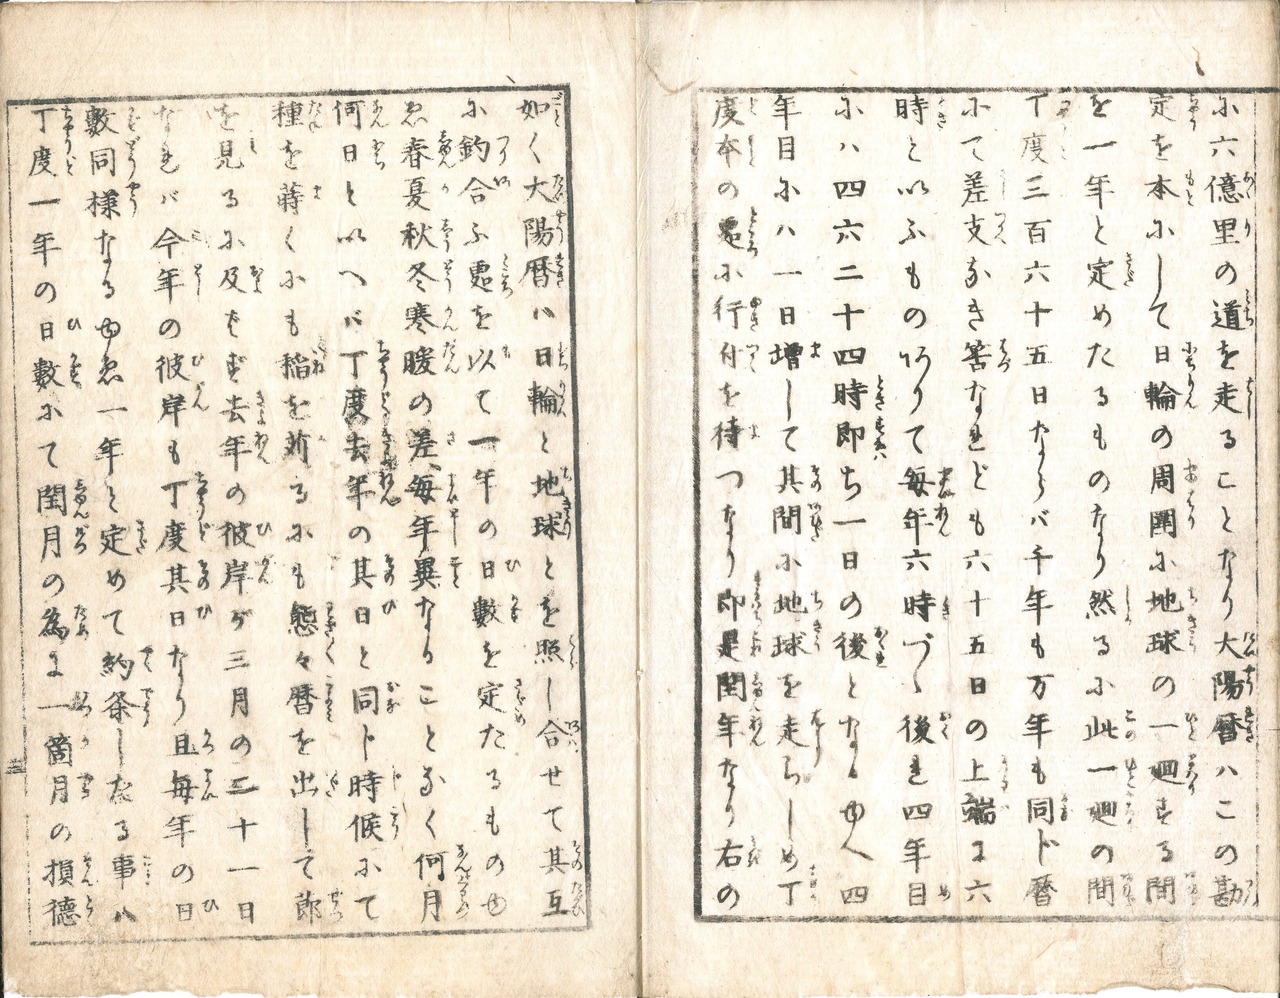 に六億里の道を走ることなり大陽暦ハこの勘
定を本にして日輪の周圍に地球の一廻する間
を一年と定めたるものなり然るに此一廻の間
丁度三百六十五日ならバ千年も万年も同じ暦
にて差支なき筈なれども六十五日の上端に六
時と以ふものありて毎年六時づゝ後れ四年目
にハ四六二十四時即ち一日の後となるゆへ四
年目にハ一日増して其間に地球を走らしめ丁
度本の處に行付を待つなり即是閏年なり右の
如く大陽暦ハ日輪と地球とを照し合せて其互
に釣合ふ處を以て一年の日數を定たるものゆ
ゑ春夏秋冬寒暖の差毎年異なることなく何月
何日といへバ丁度去年の其日と同じ時候にて
種を蒔くにも稲を苅るにも態々暦を出して節
を見るに及ばず去年の彼岸が三月の二十一日
なれバ今年の彼岸も丁度其日なり且毎年の日
數同様なるゆゑ一年と定めて約条したる事ハ
丁度一年の日數にて閏月の為に一箇月の損徳